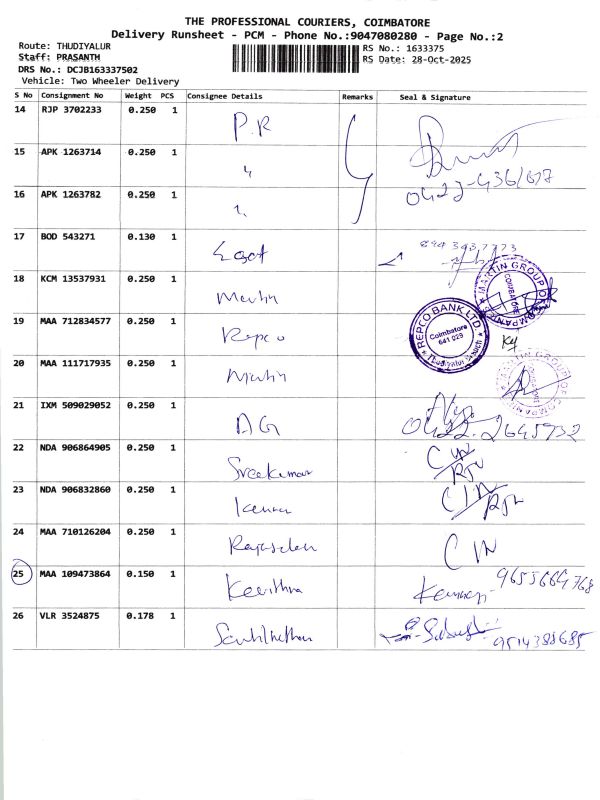 THE PROFESSIONAL COURIERS, COIMBATORE
Delivery Runsheet - PCM - Phone No.:9047080280 - Page No.:2
Route: THUDIYALUR
Staff: PRASANTH
DRS No.: DCJB163337502
Vehicle: Two Wheeler Delivery
RS No.: 1633375
RS Date: 28-Oct-2025
S No Consignment No Weight PCS Consignee Details Remarks Seal & Signature
14 RJP 3702233 0.250 1 P.R
15 APK 1263714 0.250 1 "
16 APK 1263782 0.250 1
17 BOD 543271 0.130 1
18 KCM 13537931 0.250 1 Martin
MARTIN GROUP OF COMPANIES
COIMBATORE
19 MAA 712834577 0.250 1 Repco
REPCO BANK LTD
Coimbatore
641 029
20 MAA 111717935 0.250 1 Martin
MARTIN GROUP OF COMPANIES
COIMBATORE
21 IXM 509029052 0.250 1 AG 0422-2645732
22 NDA 906864905 0.250 1 Sreekumar
23 NDA 906832860 0.250 1 Kannan
24 MAA 710126204 0.250 1
25 MAA 109473864 0.150 1 Kavithra 9655664768
26 VLR 3524875 0.178 1 9514388685